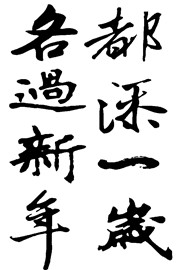 都深一歲
各過新年